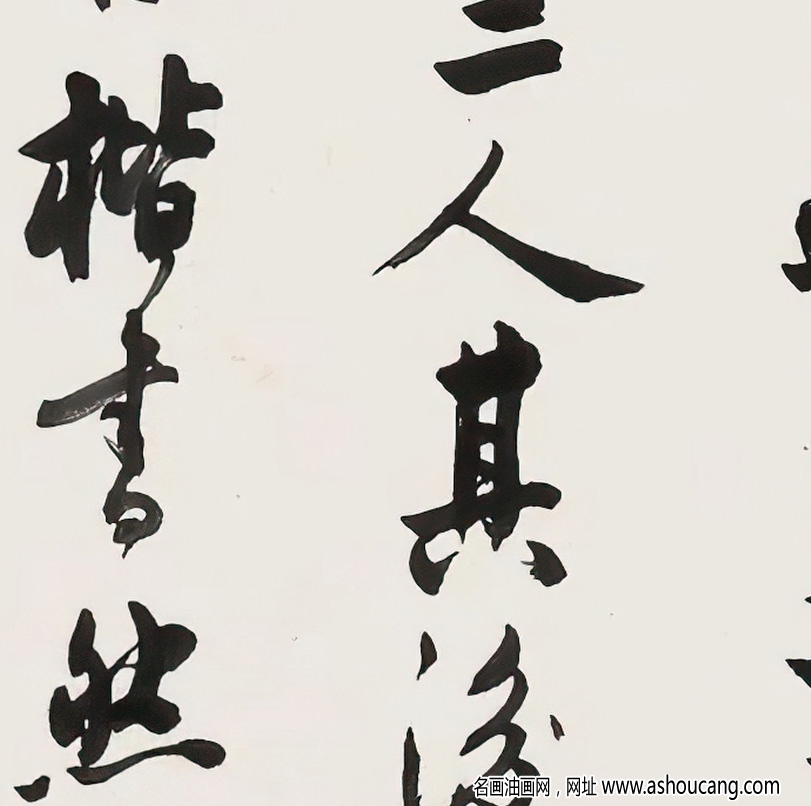 二人其後
楷書然
名画油画网，网址 www.ashoucang.com